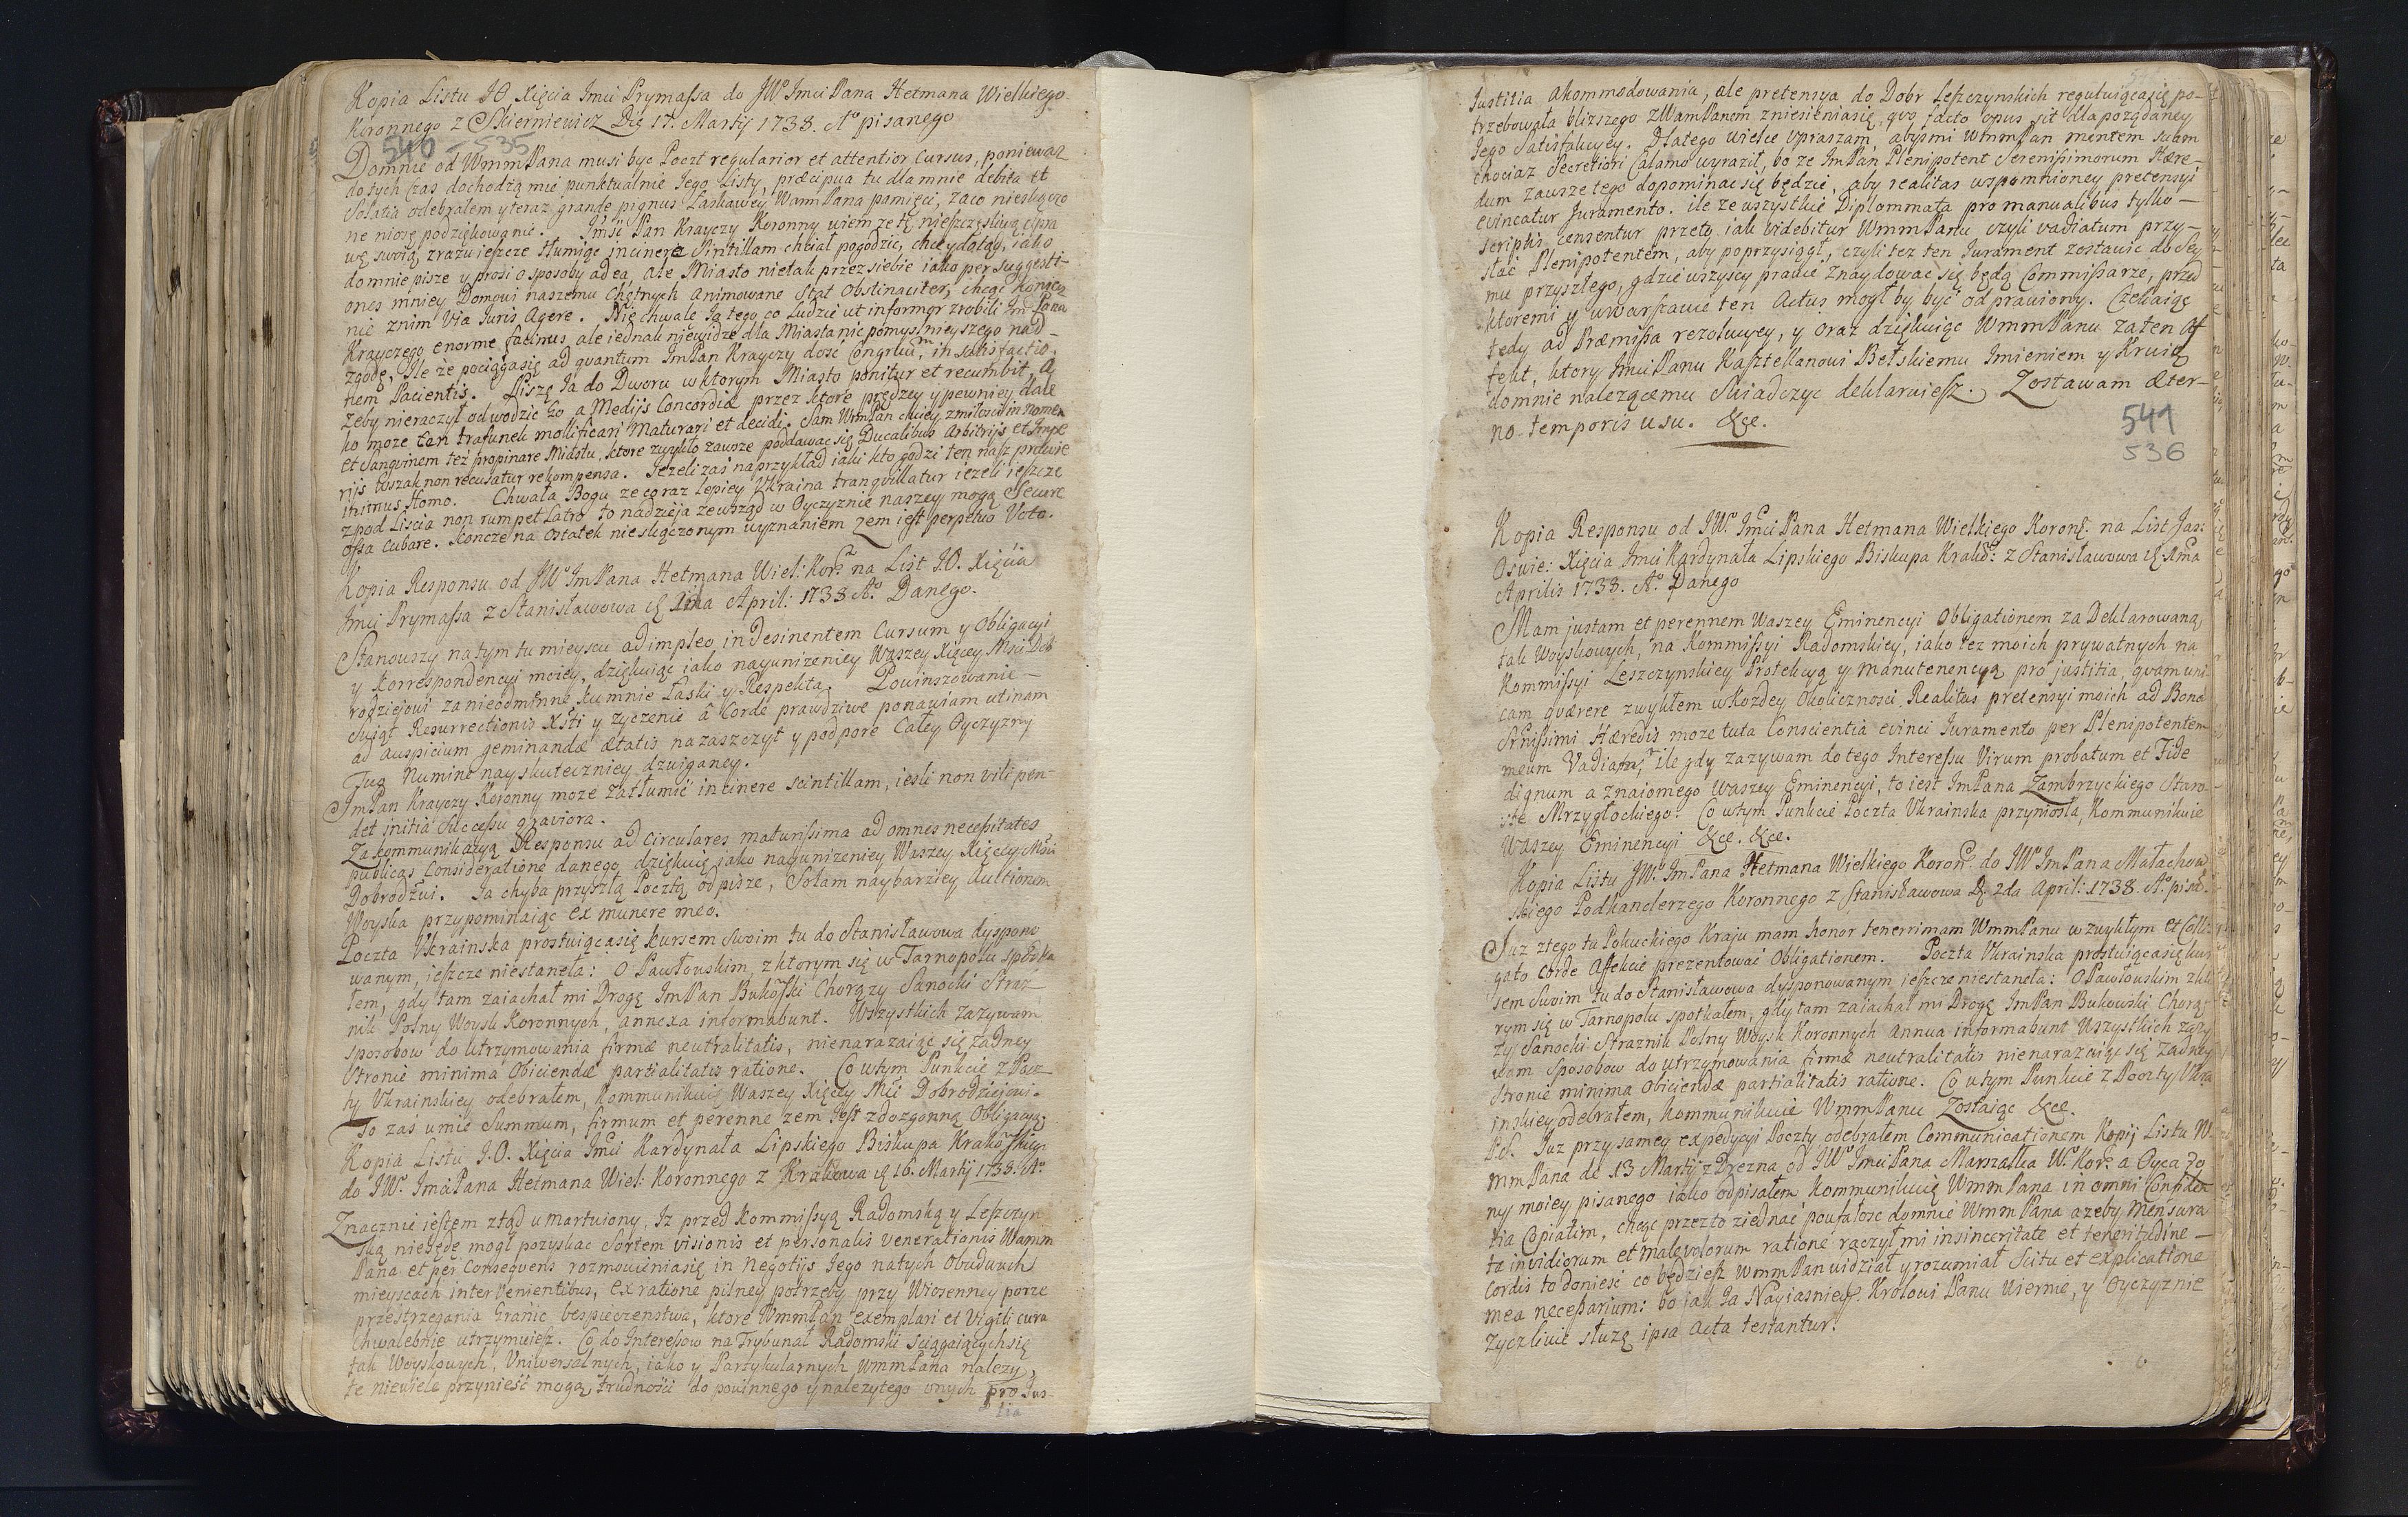 Kopia Listu JO Xięcia Jmci Prymassa do JWo Jmci Pana Hetmana Wielkiego
Koronnego z Skierniewicz Die 17. Martij 1738. Ao pisanego
540 - 535
Domnie od WmmPana musi byc Poczt regularior et attentior Cursus, poniewaz
do tych czas dochodzą mię punktualnie Jego Listy, præcipua tu dla mnie debita et
Solatia odebrałem y teraz grande pignus Łaskawey WmmPana pamięci, zaco nieskączo
ne niosę podziękowanie. Jmść Pan Krayczy Koronny wiem ze tę nieszczęsliwą spra
wę swoią zrazu ieszcze tłumiąc in cinere Sintillam chciał pogodzic, chce y dotąd, iako
domnie pisze y prosi o sposoby ad ea, Ale Miasto nietak przez siebie iako per suggesti-
ones mniey Domowi naszemu Chętnych animowane Stat Obstinaciter, chcąc koniecz
nie znim Via Juris Agere. Nie chwalę Ja tego co Ludzie ut informor zrobili Jm Pana
Krayczego enorme facinus, ale iednak niewidzę dla Miasta nic pomyslnieyszego nad
zgodę, Ile że pociągasię ad quantum JmPan Krayczy dosć Congruam, in satisfactio-
nem Pacientis. Piszę Ja do Dworu wktorym Miasto ponitur et recumbit, A
zeby nieraczył odwodzic Go a Medijs Concordiæ przez ktore prędzey y pewniey dale
ko może ten trafunek mollificari Maturari et decidi. Sam WmPan chciey zmiłosci in nomen
et Sanguinem też propinare Miastu, ktore zwykło zawsze poddawac się Ducalibus Arbitrijs et Impe
rijs toszak non recusatur rekompensa. Jezeli zaś naprzykład iaki kto godzi ten nasz prawie
initnus Homo. Chwała Bogu ze coraz lepiey Ukraina tranquillatur iezeli ieszcze
zpod Liscia non rumpet Latro to nadzieja zewsząd w Oyczyznie naszey mogą Secure
ossa cubare. Koncze na ostatek nieskączonym wyznaniem zem iest perpetuo Voto.
Kopia Responsu od JWo JmPana Hetmana Wiel: Kor: na List JO. Xięcia
Jmci Prymassa z Stanisławowa d. 1ma April: 1738 Ao. Danego.
Stanowszy na tym tu mieyscu adimpleo indesinentem Cursum y Obligacyi
y korrespondencyi moiey, dziękuiąc iako nayunizeniey Waszey Xięcey Mści Dob
rodziejowi zanieodminne ku mnie Łaski y Respekta. Powinszowanie
Swiąt Resurrectionis Xsti y zyczenie â Corde prawdziwe ponawiam utinam
ad auspicium geminandæ ætatis na zaszczyt y podporę Całey Oyczyzny
Tuo Numine nayskuteczniey dzwiganey.
JmPan Krayczy Koronny moze zatłumić in cinere scintillam, iesli non vili pen-
det initia Successu graviora.
Za kommunikacyą Responsu ad circulares maturissima ad omnes necessitates
publicas Consideratione danego dziękuię iako nayunizeniey Waszey Xięcey Mści
Dobrodzwi. Ja chyba przyszłą Pocztą odpiszę, Solam naybarziey Auctionem
Woyska przypominaiąc ex munere meo.
Poczta Ukrainska prostuiącasię kursem swoim tu do Stanisławowa dyspono
wanym, ieszcze niestaneła: O Pawłowskim, z ktorym się w Tarnopolu spotka
łem, gdy tam zaiachał mi Drogę JmPan Bukowski Chorązy Sanocki Straz
nik Polny Woysk Koronnych, annexa informabunt. Wszystkich zazywam
sposobow do utrzymowania firmæ neutralitatis, nienarazaiąc się zadney
Stronie minima Obiciendæ partialitatis ratione. Co wtym Punkcie z Pocz
ty Ukrainskiey odebrałem, kommunikuię Waszey Xięcey Mści Dobrodziejowi.
To zaś umie Summum, firmum et perenne zem Jest zdozgonną Obligacyą.
Kopia Listu J.O. Xięcia Jmci Kardynała Lipskiego Biskupa Krakowskiego
do JWo. Jmci Pana Hetmana Wiel: Koronnego z Krakowa d. 16. Martij 1738. Ao.
Znacznie iestem ztąd umartwiony, Iz przed kommissyą Radomską y Leszczyn
ską niebędę mogł pozyskac Sortem visionis et personalis venerationis Wmm
Pana et per Consequens rozmowieniasię in Negotijs Jego natych Obudwuch
mieyscach interVenientibus, ex ratione pilney potrzeby przy Wiosenney porze
przestrzegania Granic bespieczenstwa, ktore WmmPan exemplari et Vigili cura
chwalebnie utrzymuiesz. Co do Interessow na Trybunał Radomski sciągaiącychsię
tak Woyskowych, Uniwersalnych, iako y Partykularnych WmmPana nalezy,
te niewiele przynieść mogą trudności do powinnego y nalezytego onych pro Jus-
titia
Justitia akommodowania, ale pretensya do Dobr Leszczynskich reguluiącasię po-
trzebowała blizszego z WmmPanem zniesieniasię, quo facto opus sit dla pożądaney
Jego Satisfakcyey. Dlatego wielce upraszam, abyśmi WmmPan mentem suam
chociaz Secretiori Calamo wyraził, bo ze JmPan Plenipotent Serenissimorum Hære-
dum zawsze tego dopominac się będzie, aby realitas wspomnioney pretensyi
evincatur Juramento. ile ze wszystkie Diplommata pro manualibus tylko
scriptis censentur przeto iak videbitur WmmPanu czyli vadiatum przy-
słać Plenipotentem, aby poprzysiągł, czyli tez ten Jurament zostawic do Sey
mu przyszłego, gdzie wszyscy prawie znaydowac się będą Commissarze, przed
ktoremi y w Warszawie ten Actus mogł by być odprawiony. Czekaiąc
tedy ad Præmissa rezolucyey, y oraz dziękuiąc WmmPanu za ten Af
fekt, ktory Jmci Panu Kasztellanowi Bełskiemu Imieniem y Krwią
domnie nalezącemu Swiadczyc deklaruiesz. Zostawam æter-
no temporis usu. &ce.
541
536
Kopia Responsu od JWo. Jmci Pana Hetmana Wielkiego Koron: na List Jas:
Oswie: Xięcia Jmci Kardynała Lipskiego Biskupa Krakow: z Stanisławowa d. 1ma
Aprilis 1738. Ao. Danego
Mam justam et perennem Waszey Eminencyi Obligationem za Deklarowaną
tak Woyskowych, na Kommissyi Radomskiey, iako tez moich prywatnych na
Kommissyi Leszczynskiey Protekcyą y manutenencyą pro justitia, quam uni-
cam quærere zwykłem w kozdey Okoliczności. Realitas pretensyi moich ad Bona
Srnissimi Hæredis moze tuta Conscientia evinci Juramento per Plenipotentem
meum Vadiatum, Ile gdy zazywam do tego Interessu Virum probatum et Fide
dignum a znaiomego Waszey Eminencyi, to iest JmPana Zambrzyckiego Staro-
stę Mrzygłockiego. Co wtym Punkcie Poczta Ukrainska przyniosła, kommunikuie
Waszey Eminencyi &ce. &ce.
Kopia Listu JWo. JmPana Hetmana Wielkiego Koron: do JWo JmPana Małachow
skiego Podkanclerzego Koronnego z Stanisławowa D. 2da April: 1738. Ao. pisa.
Juz ztego tu Pokuckiego Kraju mam honor tenerrimam WmmPanu w zwykłym et Colli-
gato Corde Affekcie prezentować Obligationem. Poczta Ukrainska prostuiącasię kur
sem swoim tu do Stanisławowa dysponowanym ieszcze niestaneła: O Pawłowskim z kto
rym się w Tarnopolu spotkałem, gdy tam zaiachał mi Drogę JmPan Bukowski Chorą
zy Sanocki Straznik Polny Woysk Koronnych annua informabunt Wszystkich zazy
wam Sposobow do utrzymowania firmæ neutralitatis nienarazaiąc się zadney
Stronie minima Obiciendæ partialitatis ratione. Co wtym Punkcie z Poczty Ukra
inskiey odebrałem, kommunikuie WmmPanu Zostaiąc &ce.
P.S. Juz przy samey expedycyi Poczty odebrałem Communicationem Kopij Listu W
mmPana de 13 Martij z Drezna od JWo Jmci Pana Marszałka Wo. Kor: a Oyca Zo
ny moiey pisanego iako odpisałem kommunikuię WmmPana in omni Confiden
tia Copiatim, chcąc przezto ziednać poufałosc domnie WmmPana azeby Mensura
ta invidiorum et malevolorum ratione raczył mi insinceritate et teneritudine
Cordis to doniesć co będziesz WmmPan widział y rozumiał Scitu et explicatione
mea necessarium: bo iak Ja Nayiasniey: Krolowi Panu Wiernie, y Oyczyznie
Zyczliwie słuzę ipsa Acta testantur.